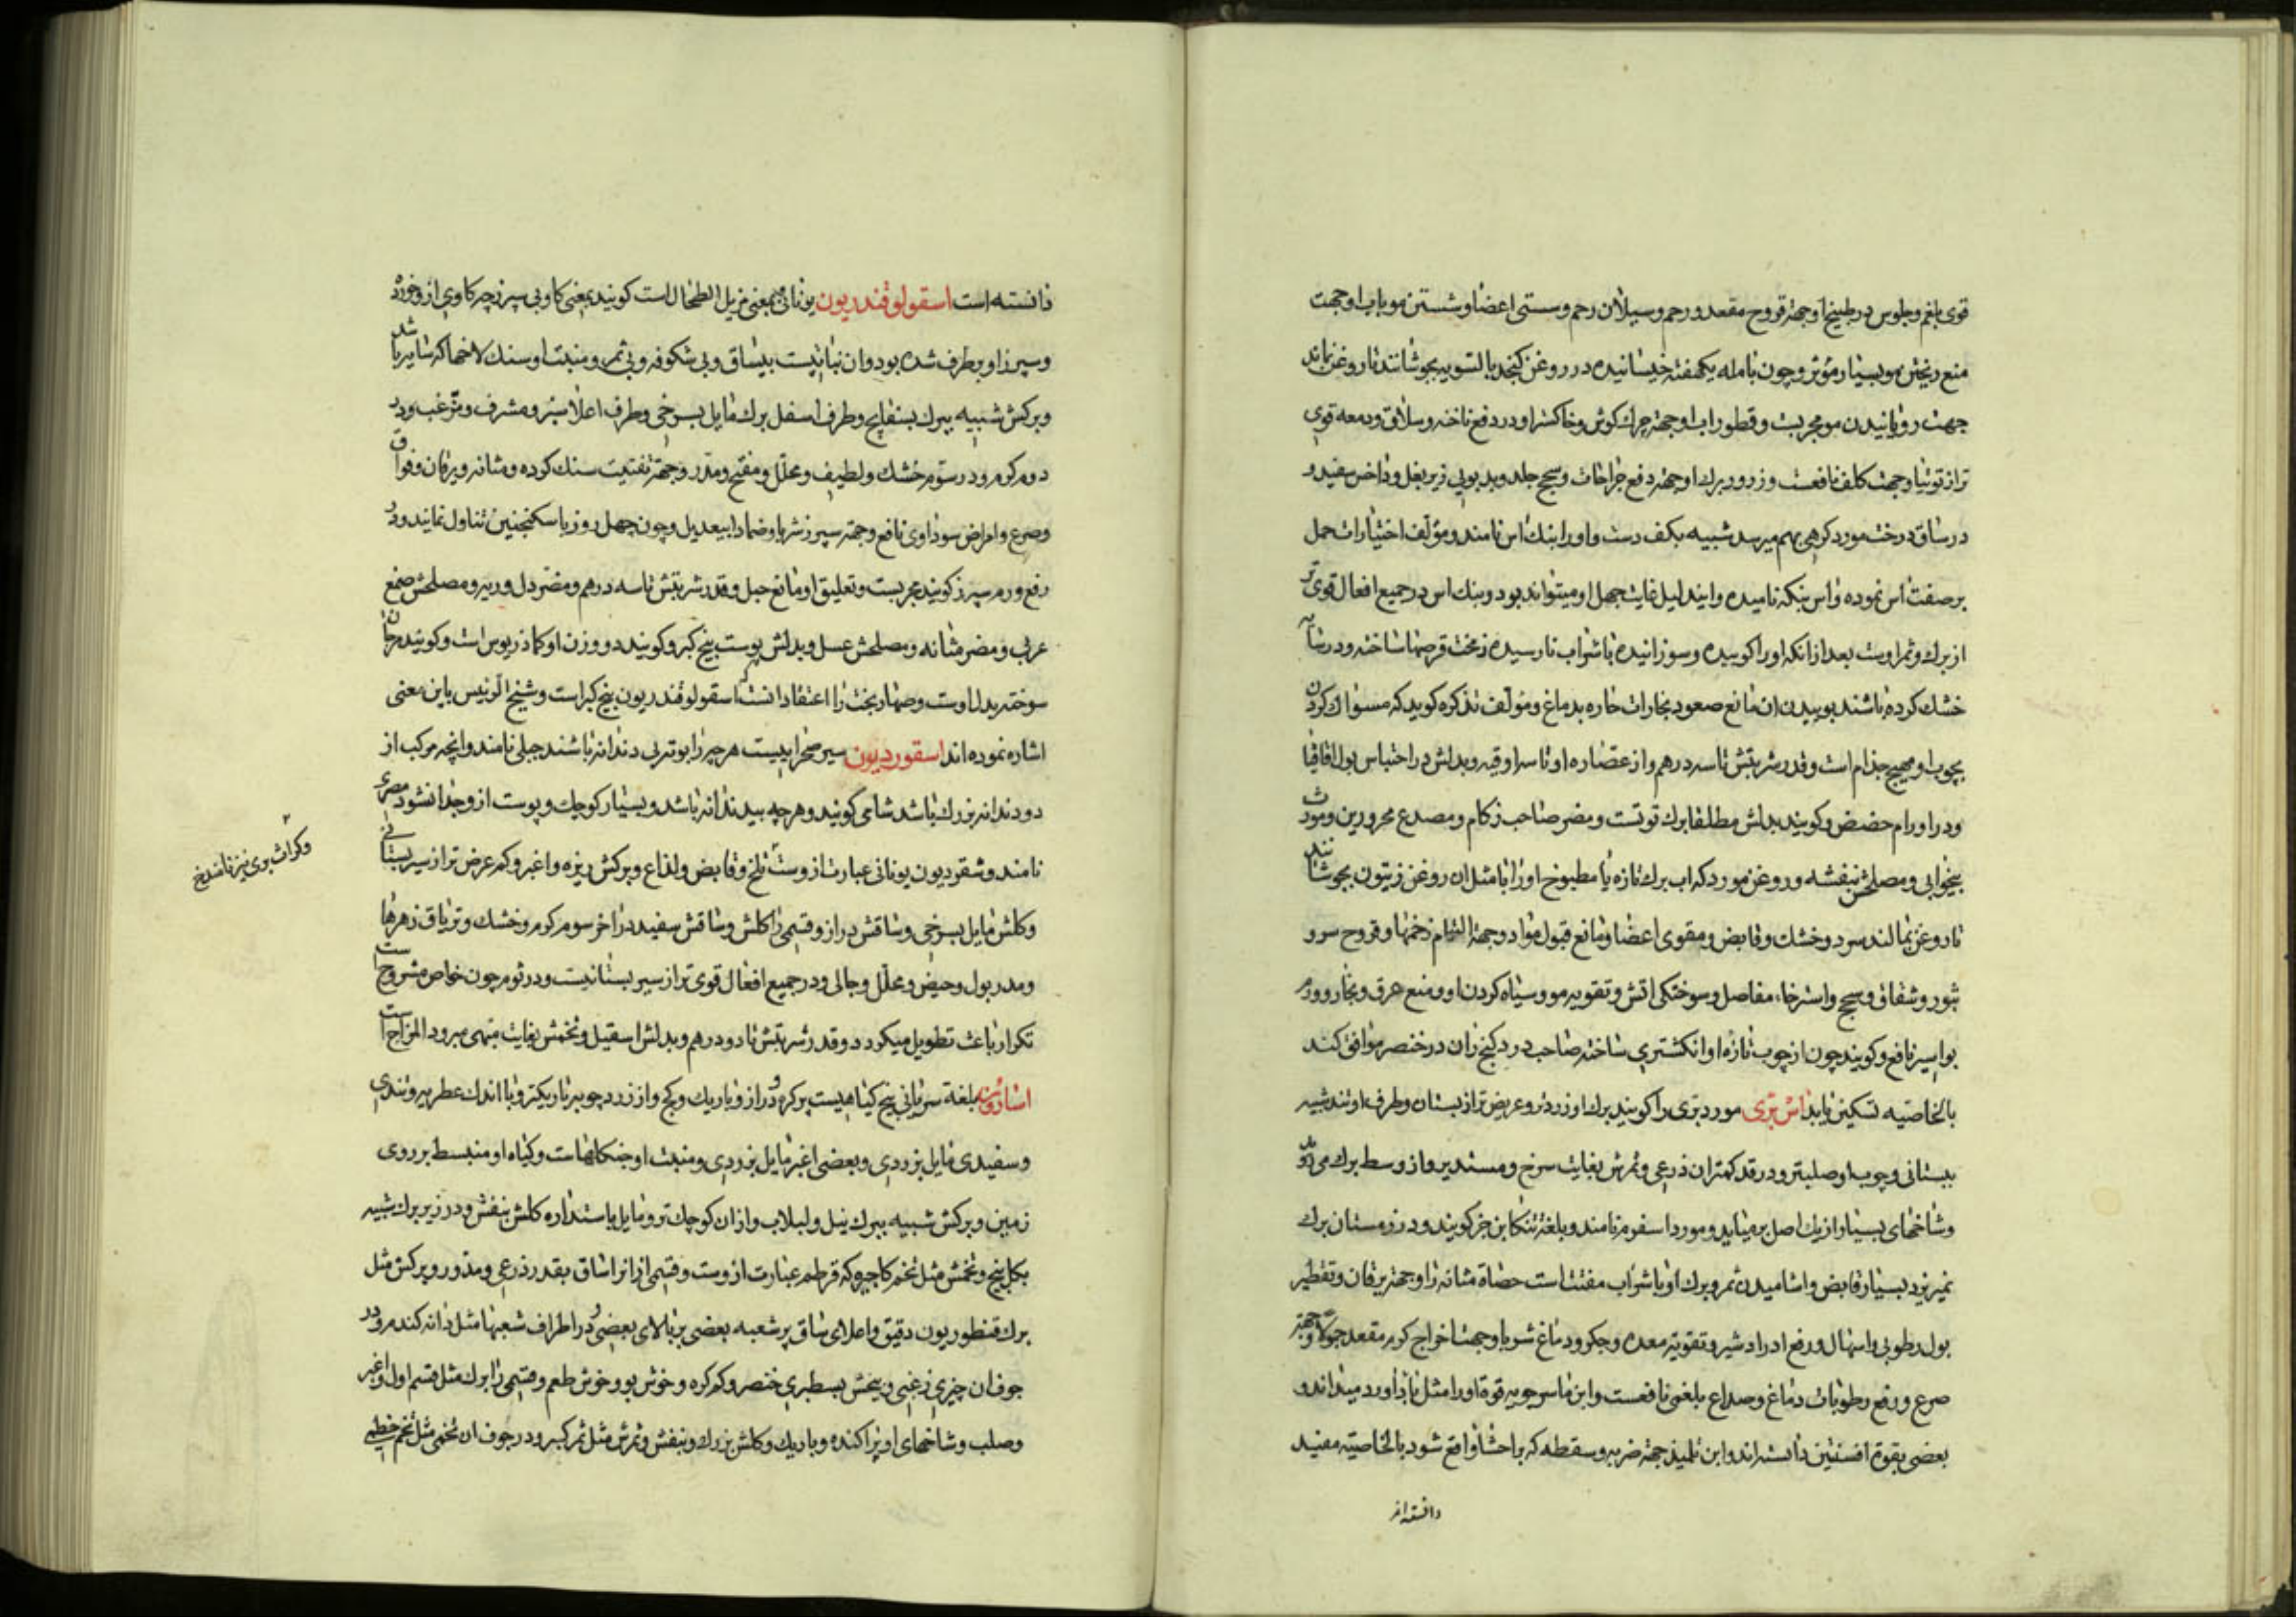 قوی بلغم و جلوس در طبیخ او جهة قروح مقعد و رحم و سیلان رحم و سستی اعضا و شستن مو باب او جهت
منع ریختن مو بسیار مؤثر و چون با مله یکهفته خیسانیده در روغن کنجد بالتسویه بجوشانند تا روغن بماند
جهت رویانیدن مو مجربست و قطور اب او جهة چرك کوش و خاکستر او در دفع ناخنه و سلاق و دمعه قوی
تر از توتیا و جهت کلف نافعست و زرور برك او جهة دفع جراحات و سحج جلد و بدبویی زیر بغل و داخس مفید و
در ساق درخت مورد کرهی بهم میرسد شبیه بکف دست و اورا بنك اس نامند و مؤلف اختیارات حمل
بر صفت اس نموده و اس بنکه نامیده و ایند لیل غایت جهل او میتواند بود و بنك اس در جمیع افعال قوی تر
از برك و ثمر اوست بعد از انکه اورا کوبیده و سوزانیده با شراب نارسیده زمخت قرصها ساخته و در سایه
خشك کرده باشند بوییدن ان مانع صعود بخارات حاره بدماغ و مؤلف تذکره کوید که مسواك کردن
بچوب او مهیج جذام است و قدر شربتش تا سه درهم و از عصاره او تا سه اوقیه و بدلش در احتباس بول اقاقیا
و در اورام حضض و کویند بدلش مطلقا برك توتست و مضر صاحب زکام و مصدع محرورین و مورث
بیخوابی و مصلحش بنفشه و روغن مورد که اب برك تازه یا مطبوخ اورا با مثل ان روغن زیتون بجوشانند
تا روغن بماند سرد و خشك و قابض و مقوی اعضا و مانع قبول مواد و جهة التیام زخمها و قروح سر و
بثور و شقاق و سحج و استرخاء مفاصل و سوختکی اتش و تقویه مو و سیاه کردن او و منع عرق و بخار و ورم
بواسیر نافع و کویند چون از چوب تازه او انکشتری ساخته صاحب درد کنج ران در خنصر موافق کند
بالخاصیه تسکین یابد اس بری مورد بری را کویند برك او زردتر و عریض تر از بستان و طرف او تند شبیه
ببستانی و چوب او صلبتر و در قد کمتر ان ذرعی و ثمرش بغایت سرخ و مستدیر و از وسط برك میروید
و شاخهای بسیار از یك اصل برمیاید و مورد اسفرم نامند و بلغة تنکابن خز کویند و در زمستان برك
نمیریزد بسیار قابض و اشامیدن ثمر و برك او با شراب مفتت است حصاة مثانه را و جهة یرقان و تقطیر
بول رطوبی و اسهال و رفع ادرار شیر و تقویة معده و جکر و دماغ شربا و جهت اخراج کرم مقعد حمولا و جهة
صرع و رفع رطوبات دماغ و صداع بلغمی نافعست و ابن ماسرجویه قوة اورا مثل بازاورد میداند و
بعضی بقوة افسنتین دانسته اند و ابن تلمیذ جهة ضربه و سقطه که باحشا واقع شود بالخاصیة مفید
دانسته است
دانسته است اسقولوقندریون یونانی بمعنی مزیل الطحال است کویند یعنی کاو بی سپرز چه کاوی ازو خورد
و سپرز او برطرف شده بود و ان نباتیست بیساق و بی شکوفه و بی ثمر و منبت او سنك لاخها که سایه باشد
و برکش شبیه ببرك بسفایج و طرف اسفل برك مایل بسرخی و طرف اعلا سبز و مشرف و مزغب و در
دوم کرم و در سوم خشك و لطیف و محلل و مفتح و مدر و جهة تفتیت سنك کرده و مثانه و یرقان و فواق
و صرع و امراض سوداوی نافع و جهة سپرز شربا و ضمادا بیعدیل و چون چهل روز با سکنجنین تناول نمایند و در
رفع ورم سپرز کویند مجربست و تعلیق او مانع حبل و قدر شربتش تا سه درهم و مضر دل و ریه و مصلحش صمغ
عربی و مضر مثانه و مصلحش عسل و بدلش پوست بیخ کبر و کویند دو وزن او کماذریوس است و کویند مرجان
سوخته بدل اوست و صهاربخت را اعتقاد انست که اسقولوقندریون بیخ کبر است و شیخ الرئیس باین معنی
اشاره نموده اند اسقوردیون سیر صحراییست هرچه را بوتر بی دندانه باشند جبلی نامند و انچه مرکب از
دو دندانه بزرك باشد شامی کویند و هرچه بیدندانه باشد و بسیار کوچك و پوست ازو جدا نشود مصری
نامند و شقوردیون یونانی عبارت ازوست تلخ و قابض و لذاع و برکش ریزه و اغبر و کم عرض تر از سیر بستانی
و کلش مایل بسرخی و ساقش دراز و قسمی را کلش و ساقش سفید در اخر سوم کرم و خشك و تریاق زهرها
و مدر بول و حیض و محلل و جالی و در جمیع افعال قوی تر از سیر بستانیست و در ثوم چون خاص مشروح است
تکرار باعث تطویل میکردد و قدر شربتش تا دو درهم و بدلش اسقیل و تخمش بغایت مبهی مبرود المزاج است
اسارون بلغة سریانی بیخ کیاهیست پر کره و دراز و باریك و کج و از زرد چوبه باریکتر و با اندك عطریه و تندی
و سفیدی مایل بزردی و بعضی اغبر مایل بزردی و منبت او جنکلها است و کیاه او منبسط بر روی
زمین و برکش شبیه ببرك نیل و لبلاب و از ان کوچك تر و مایل باستداره کلش بنفش و در زیر برك شبیه
بکل بنج و تخمش مثل تخم کاجیره که قرطم عبارت ازوست و قسمی از انرا ساق بقدر ذرعی و مدور و برکش مثل
برك قنطوریون دقیق و اعلای ساق پر شعبه بعضی بر بالای بعضی و در اطراف شعبها مثل دانه کندم و در
جوف ان چیزی زغبی و بیخش بسطبری خنصر و کم کره و خوش بو و خوش طعم و قسمی را برك مثل قسم اول و اغبر
و صلب و شاخهای او پراکنده و باریك و کلش بزرك و بنفش و ثمرش مثل ثمر کبر و در جوف ان تخمی مثل تخم خطمی
و کراث بری نیز نامند